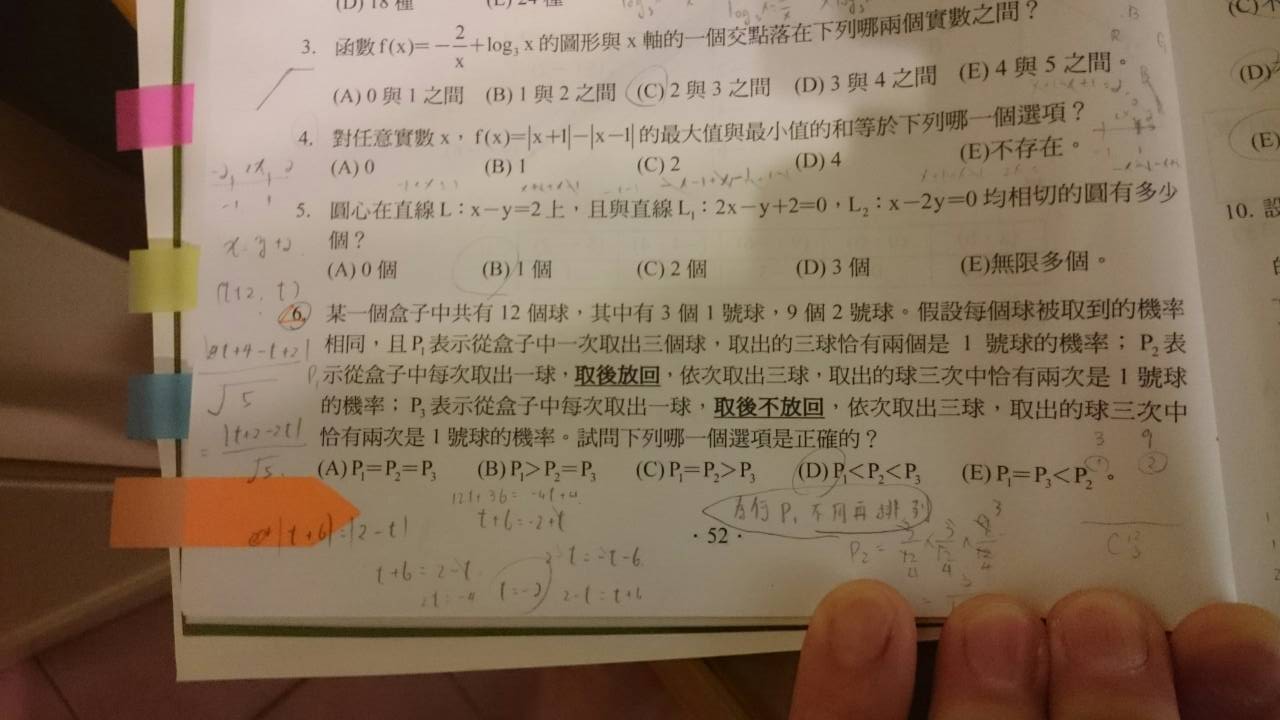 (D) 18 種 (E) 24 種
3. 函數 f(x)=−2/x+log₃ x 的圖形與 x 軸的一個交點落在下列哪兩個實數之間？
(A) 0 與 1 之間 (B) 1 與 2 之間 (C) 2 與 3 之間 (D) 3 與 4 之間 (E) 4 與 5 之間。
4. 對任意實數 x，f(x)=|x+1|−|x−1| 的最大值與最小值的和等於下列哪一個選項？
(A) 0 (B) 1 (C) 2 (D) 4 (E)不存在。
5. 圓心在直線 L：x−y=2 上，且與直線 L₁：2x−y+2=0，L₂：x−2y=0 均相切的圓有多少
個？
(A) 0 個 (B) 1 個 (C) 2 個 (D) 3 個 (E)無限多個。
6. 某一個盒子中共有 12 個球，其中有 3 個 1 號球，9 個 2 號球。假設每個球被取到的機率
相同，且 P₁ 表示從盒子中一次取出三個球，取出的三球恰有兩個是 1 號球的機率；P₂ 表
示從盒子中每次取出一球，取後放回，依次取出三球，取出的球三次中恰有兩次是 1 號球
的機率；P₃ 表示從盒子中每次取出一球，取後不放回，依次取出三球，取出的球三次中
恰有兩次是 1 號球的機率。試問下列哪一個選項是正確的？
(A) P₁=P₂=P₃ (B) P₁>P₂=P₃ (C) P₁=P₂>P₃ (D) P₁<P₂<P₃ (E) P₁=P₃<P₂。
· 52 ·
x=y+2
(t+2, t)
|2t+4-t+2|
√5
= |t+2-2t|
√5
|t+6|=|2-t|
t+6=-2+t
t+6=2-t
2t=-4
t=-2
2-t=-t-6
2-t=t+6
P₂=
3 9
① ②
10. 設
(D)
(E)